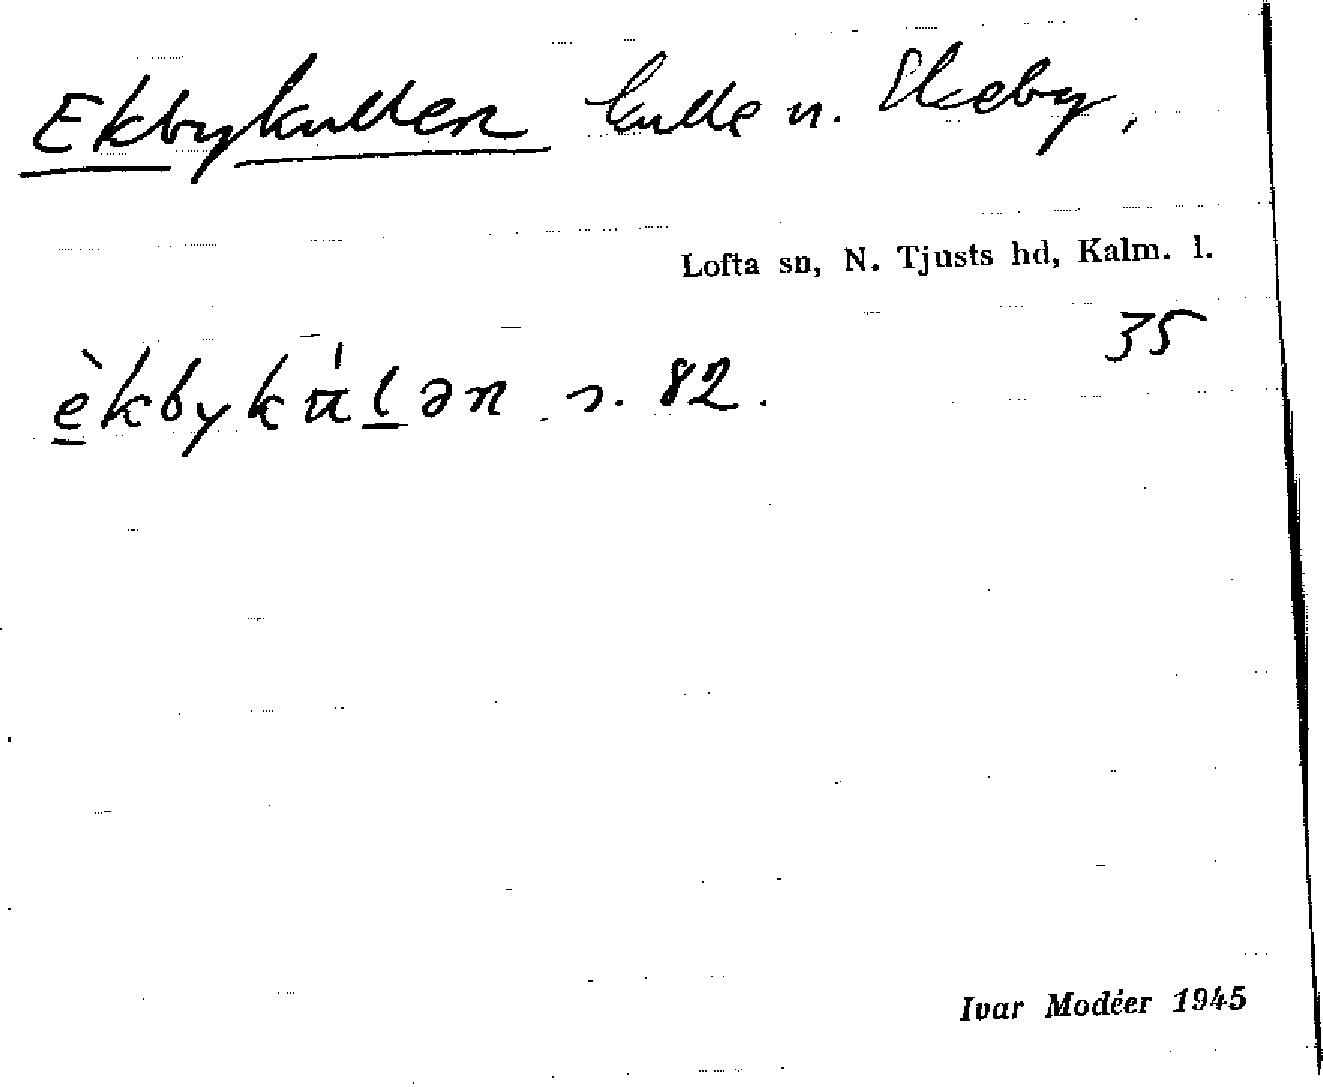 Ekbykullen kulle n. Skeby,
Lofta sn, N. Tjusts hd, Kalm. l.
35
è̱kbykù̍ḻən s. 82.
Ivar Modéer 1945